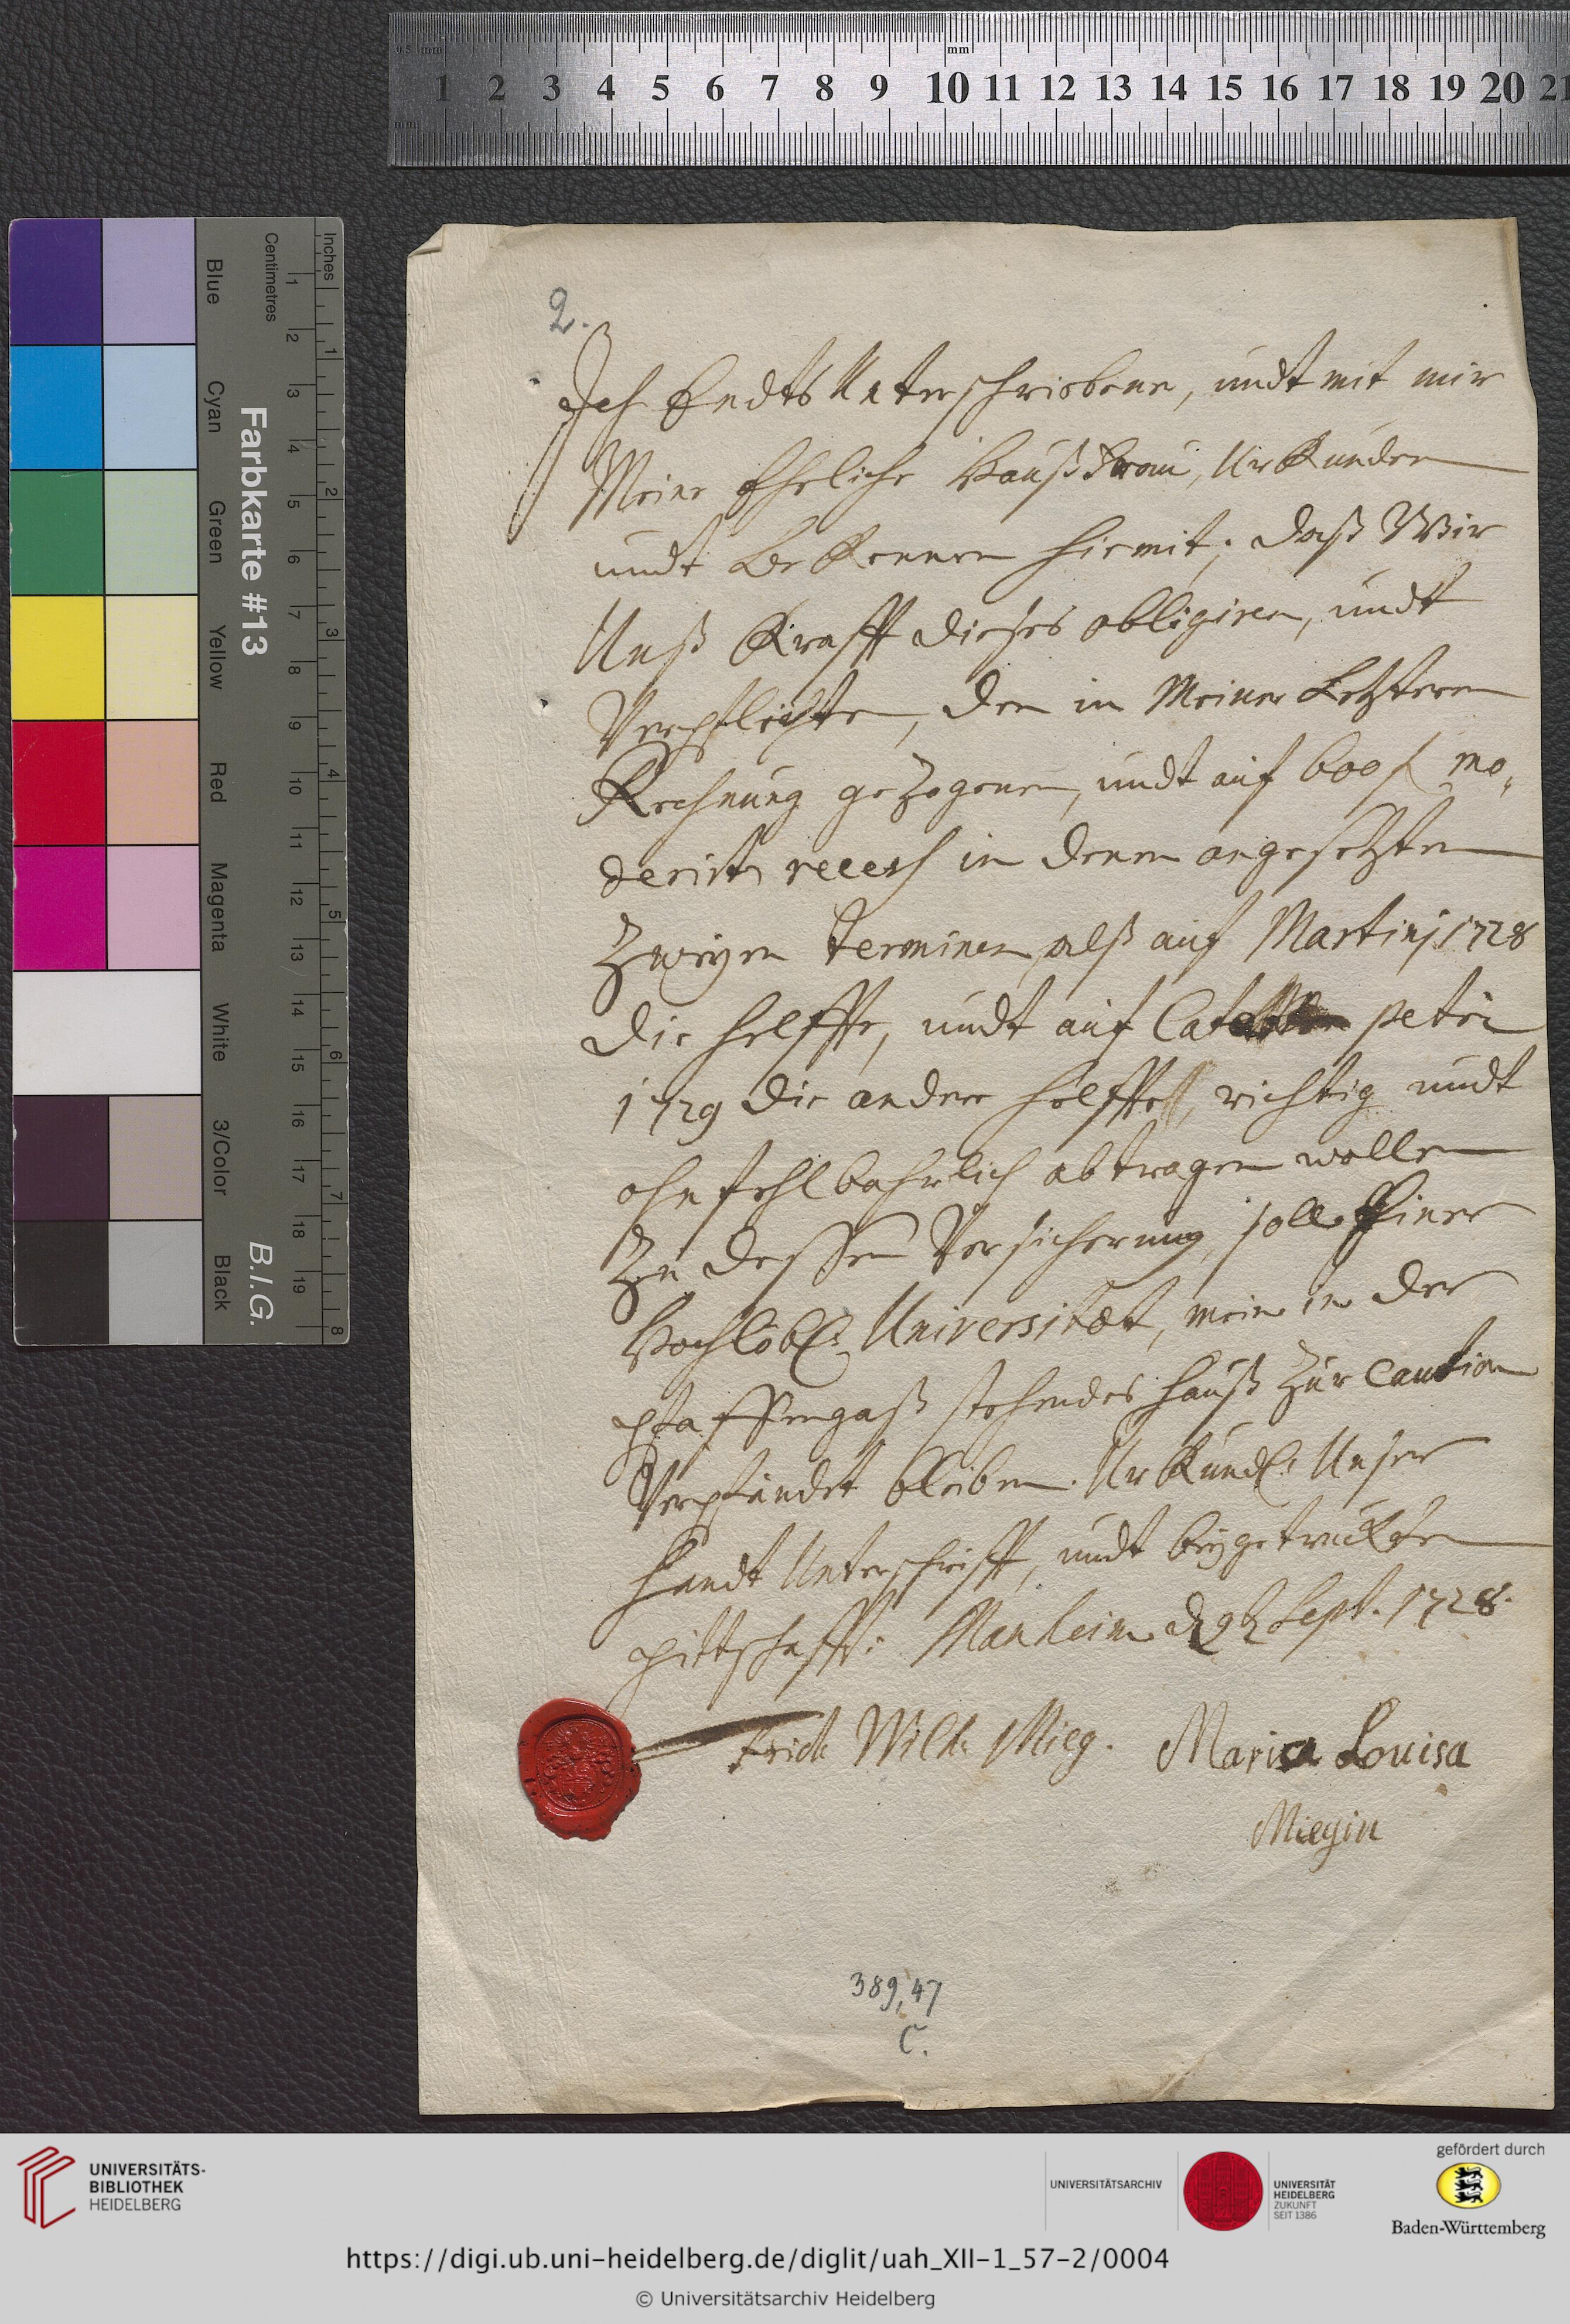 2.
Ich Endts Unterschriebene, undt mit mir
Meine Eheliche Haußfrau, Urkunden
undt Bekennen hiemit; daß Wir
Unß Krafft dießes obligiren, undt
Verpflichten, den in Meiner Letzteren
Rechnung gezogenen, undt auf 600 f mo,
derirten recess in denen angesetzten
Zweyen terminen, alß auf Martinj 1728
die helffte, undt auf Cat petri
1729 die andere helffte, richtig undt
ohnfehlbahrlich abtragen wollen
Zu dessen Versicherung, solle Einer
Hochlöbl. Universitæt, mein in der
pfaffengaß stehendes hauß zur Caution
Verpfändet bleiben. Urkundl. Unser
handt Unterschrifft, undt beygetruckten
pittschafft. Manheim d 9 Sept. 1728.
Frid. Wilh. Mieg. Maria Louisa
Miegin
389,47
C.
1 2 3 4 5 6 7 8 9 10 11 12 13 14 15 16 17 18 19 20 21
mm
Farbkarte #13
B.I.G.
Inches
Centimetres
Blue
Cyan
Green
Yellow
Red
Magenta
White
3/Color
Black
1 2 3 4 5 6 7 8
1 2 3 4 5 6 7 8 9 10 11 12 13 14 15 16 17 18 19
UNIVERSITÄTS-
BIBLIOTHEK
HEIDELBERG
UNIVERSITÄTSARCHIV
UNIVERSITÄT
HEIDELBERG
ZUKUNFT
SEIT 1386
gefördert durch
Baden-Württemberg
https://digi.ub.uni-heidelberg.de/diglit/uah_XII-1_57-2/0004
© Universitätsarchiv Heidelberg